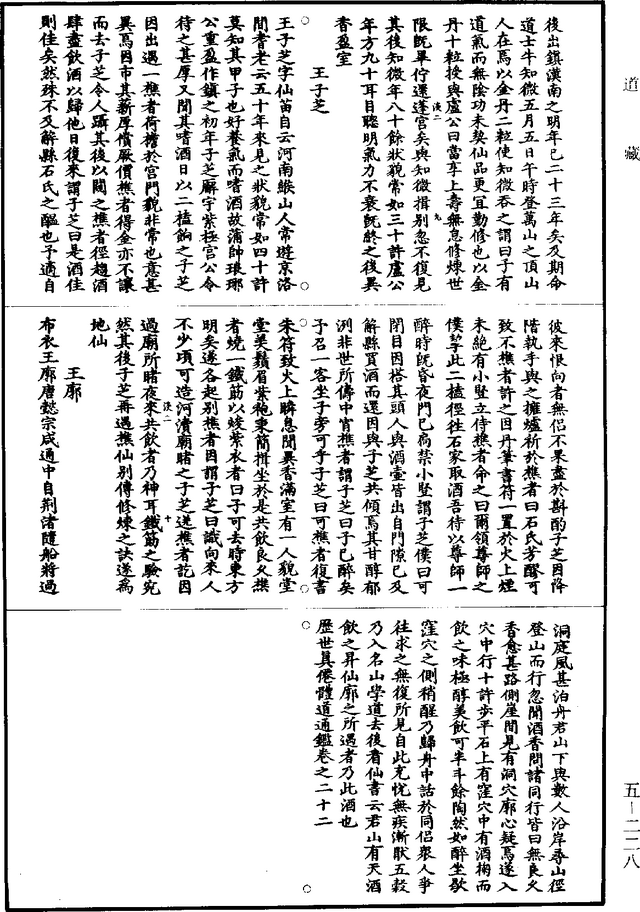 道藏
後出鎮漢南之明年已二十三年矣及期命
道士牛知微五月五日午時登萬山之頂山
人在焉以金丹二粒使知微吞之謂曰子有
道氣而無陰功未契仙品更宜勤修也以金
丹十粒授與盧公曰當享上壽無怠修煉世
限旣畢佇還蓬宮矣與知微揖別忽不復見
其後知微年八十餘狀貌常如三十許盧公
年方九十耳目聰明氣力不衰旣終之後異
香盈室
王子芝
王子芝字仙苗自云河南緱山人常遊京洛
間耆老云五十年來見之狀貌常如四十許
莫知其甲子也好養氣而嗜酒故蒲帥琅琊
公重盈作鎮之初年子芝居於紫極宮公令
待之甚厚又聞其嗜酒日以二榼餉之子芝
因出遇一樵者荷擔於宮門貌非常也意甚
異焉因市其薪厚償厥價樵者得金亦不讓
而去子芝令人躡其後以闞之樵者徑趨酒
肆盡飲酒以歸他日復來謂子芝曰是酒佳
則佳矣然殊不及解縣石氏之醞也予適自
彼來恨向者無侶不果盡於斟酌子芝因降
階執手與之擁爐祈於樵者曰石氏芳醪可
致不樵者許之因丹筆書符一置於火上煙
未絕有小豎立侍樵者命之曰爾領尊師之
僕挈此二榼徑往石家取酒吾待以尊師一
醉時旣昏夜門已扃禁小豎謂子芝僕曰可
閉目因搭其頭人與酒壺皆出自門隙已及
解縣買酒而還因與子芝共傾焉其甘醇郁
洌非世所儔中宵樵者謂子芝曰子已醉矣
予召一客坐子旁可乎子芝曰可樵者復書
朱符致火上瞬息聞異香滿室有一人貌堂
堂美鬚眉紫袍秉簡揖坐於是共飲良久樵
者燒一鐵筯以焌紫衣者曰子可去時東方
明矣遂各起別樵者因謂子芝曰識向來人
不少頃可造河瀆廟睹之子芝送樵者訖因
過廟所睹夜來共飲者乃神耳鐵筯之驗宛
然其後子芝再遇樵仙別傳修煉之訣遂爲
地仙
王廓
布衣王廓唐懿宗咸通中自荆渚隨船將過
洞庭風甚泊舟君山下與數人沿岸尋山徑
登山而行忽聞酒香問諸同行皆曰無良久
香愈甚路側崖間見有洞穴廓心疑焉遂入
穴中行十許步平石上有窪穴中有酒掬而
飲之味極醇美飲可半斗餘陶然如醉坐歇
窪穴之側稍醒乃歸舟中話於同侶衆人爭
往求之無復所見自此充悅無疾漸猒五穀
乃入名山學道去後看仙書云君山有天酒
飲之昇仙廓之所遇者乃此酒也
歷世真僊體道通鑑卷之二十二
五－二二八